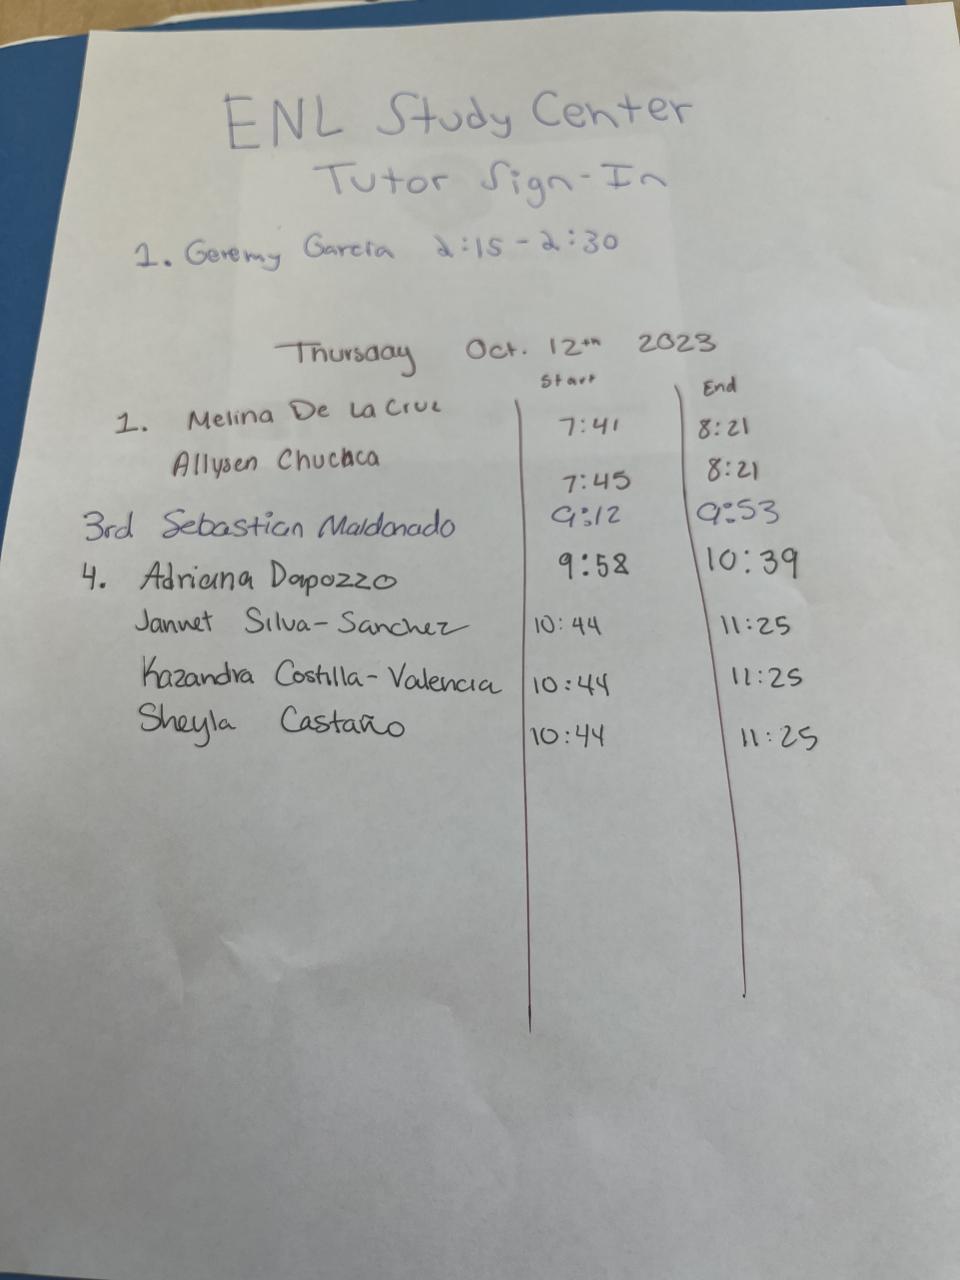 ENL Study Center
Tutor Sign-In
1. Geremy Garcia 2:15 - 2:30
Thursday Oct. 12th 2023
Start End
1. Melina De La Cruz 7:41 8:21
Allysen Chuchca 7:45 8:21
3rd Sebastian Maldonado 9:12 9:53
4. Adriana Dapozzo 9:58 10:39
Jannet Silva-Sanchez 10:44 11:25
Kazandra Costilla-Valencia 10:44 11:25
Sheyla Castaño 10:44 11:25